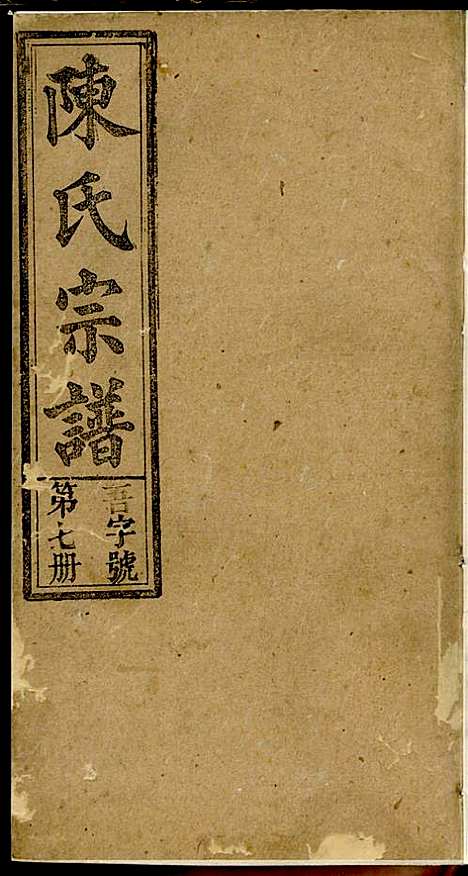 陳氏宗譜
吾字號
第七册